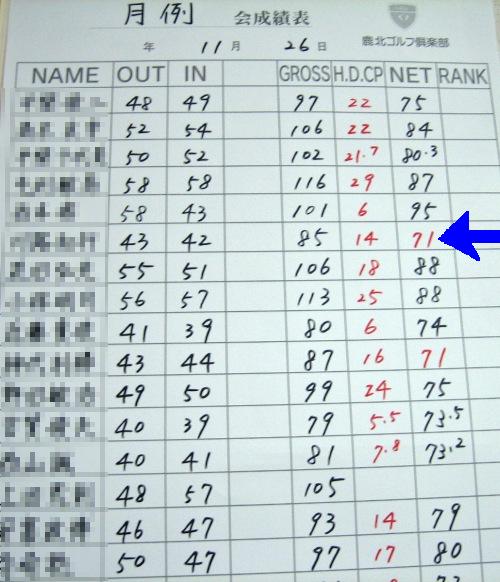 月例 会成績表
年 11月 26日 鹿北ゴルフ倶楽部
NAME OUT IN GROSS H.D.CP NET RANK
48 49 97 22 75
52 54 106 22 84
50 52 102 21.7 80.3
58 58 116 29 87
58 43 101 6 95
43 42 85 14 71
55 51 106 18 88
56 57 113 25 88
41 39 80 6 74
43 44 87 16 71
49 50 99 24 75
40 39 79 5.5 73.5
40 41 81 7.8 73.2
48 57 105
46 47 93 14 79
50 47 97 17 80